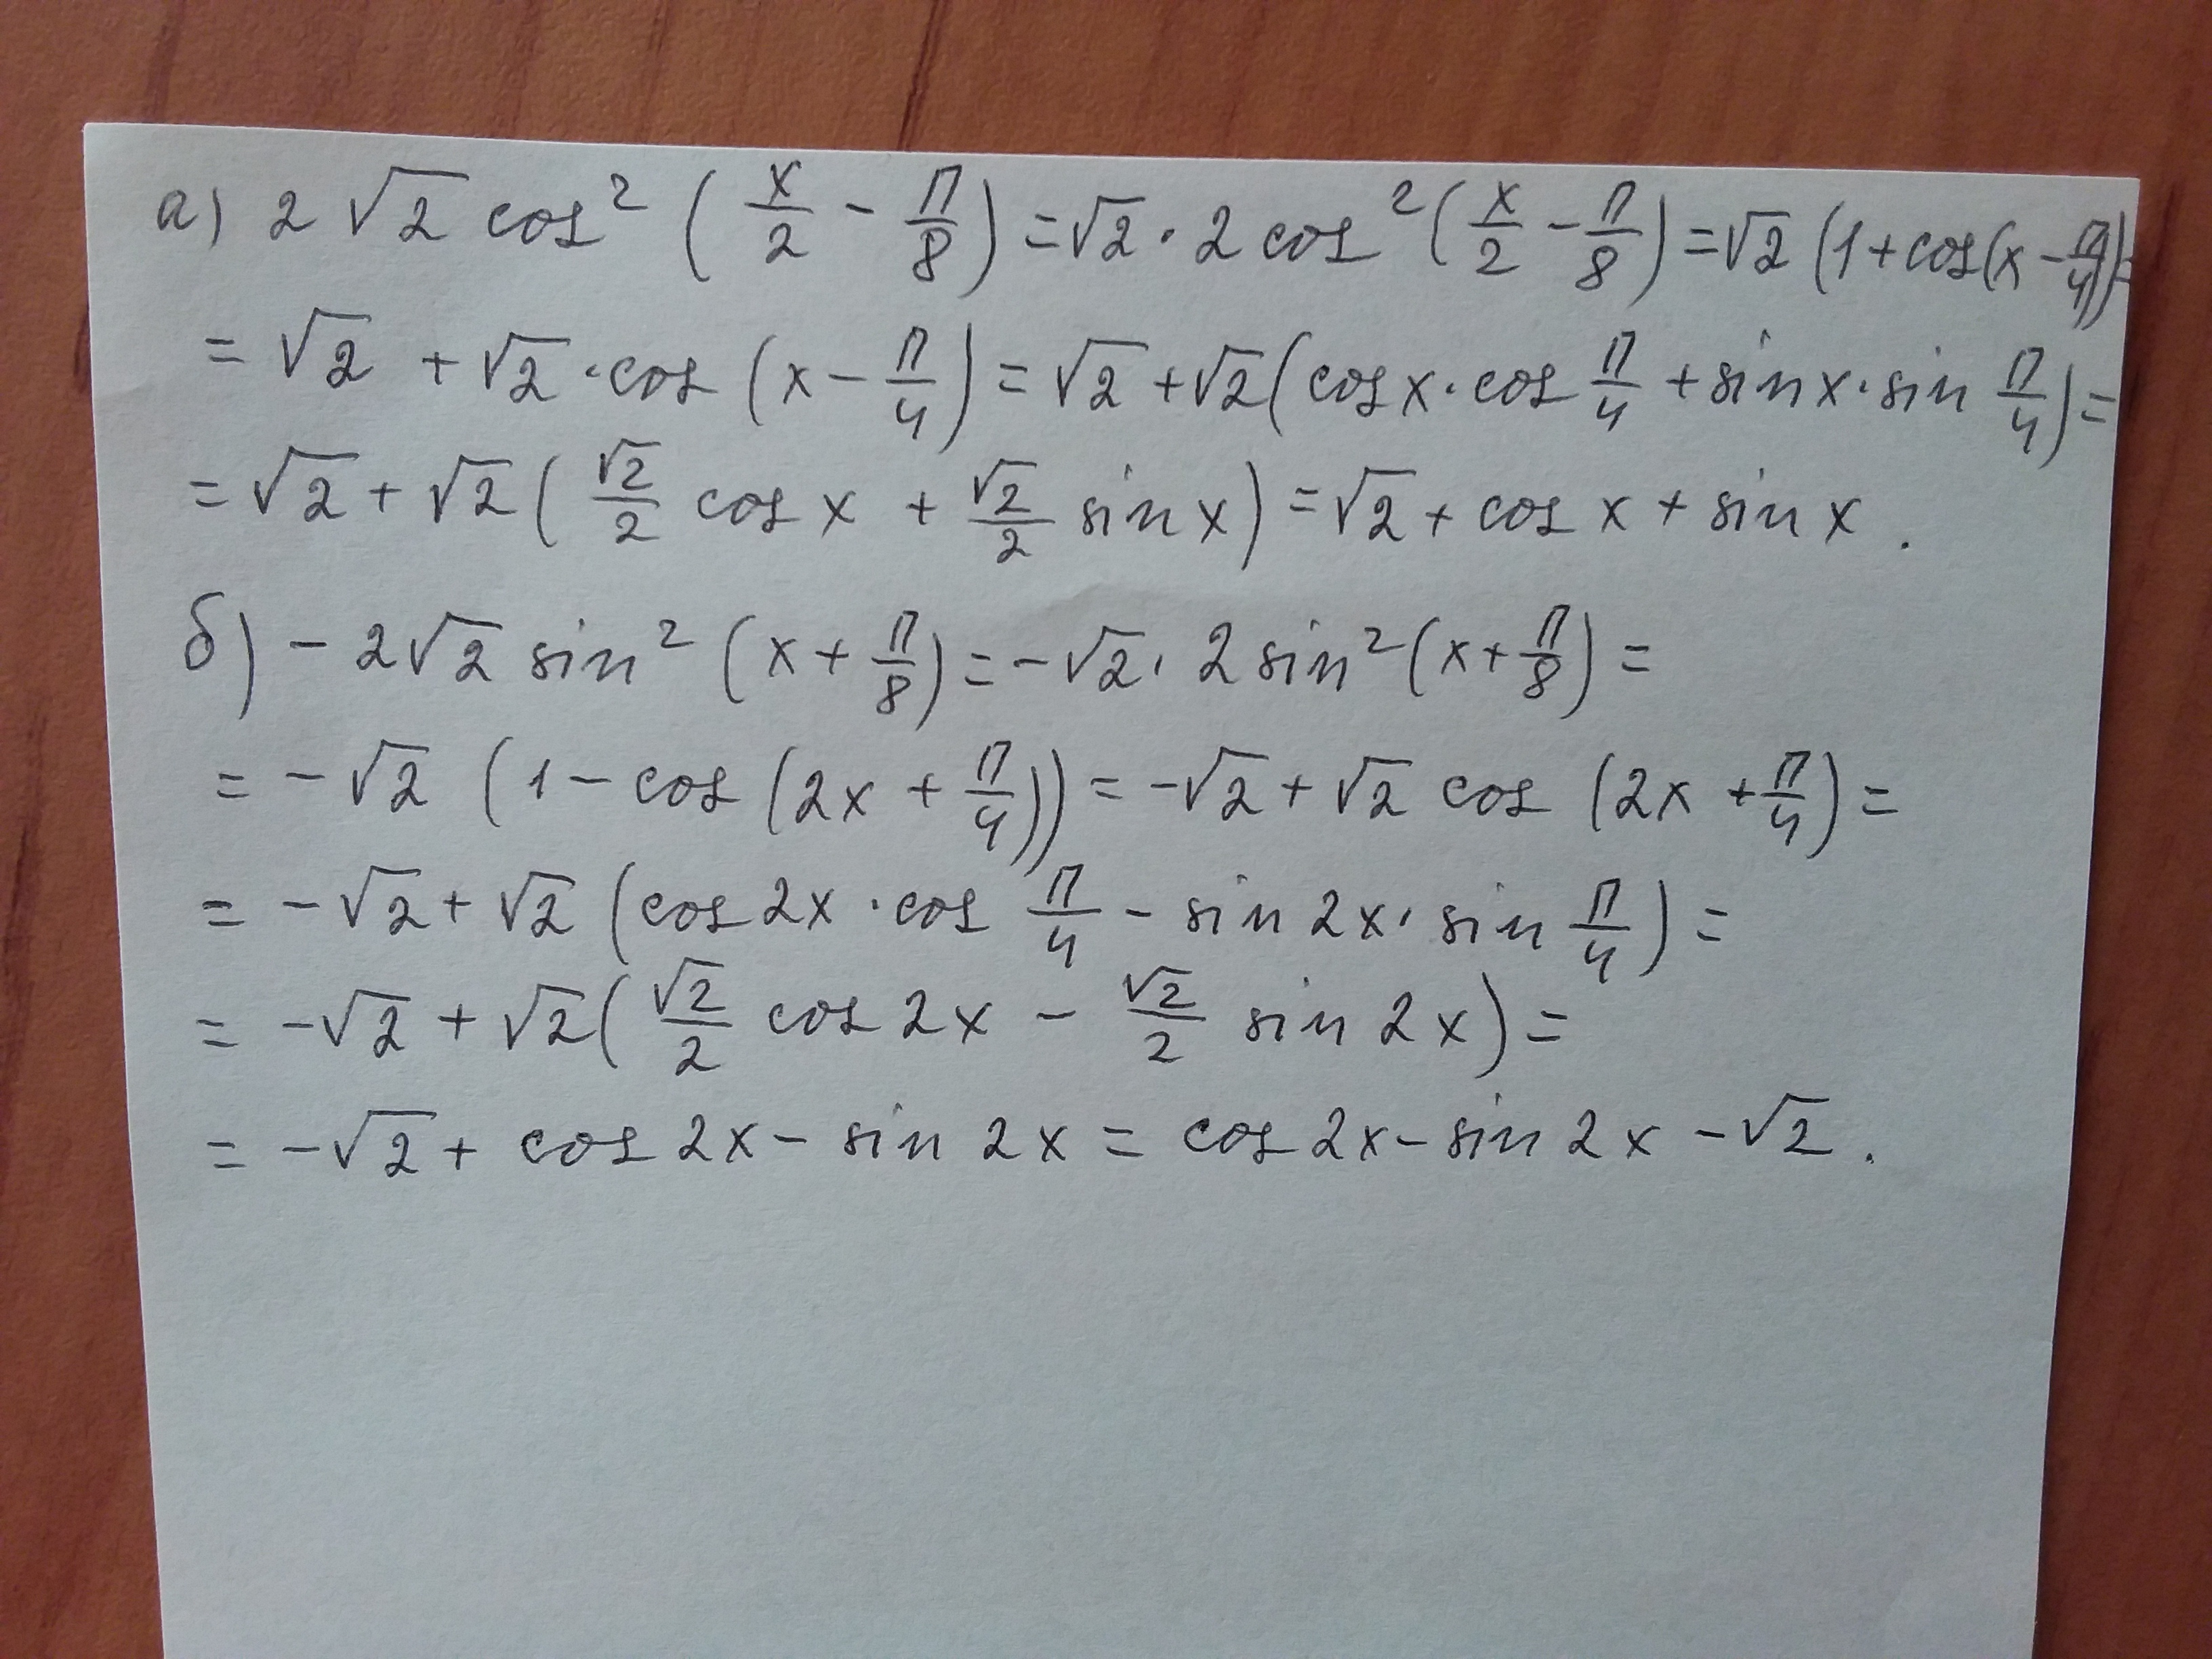 а) 2√2 cos² (x/2 − π/8) = √2 · 2 cos² (x/2 − π/8) = √2 (1 + cos(x − π/4)) =
= √2 + √2 · cos (x − π/4) = √2 + √2 (cos x · cos π/4 + sin x · sin π/4) =
= √2 + √2 (√2/2 cos x + √2/2 sin x) = √2 + cos x + sin x .
б) − 2√2 sin² (x + π/8) = − √2 · 2 sin² (x + π/8) =
= − √2 (1 − cos (2x + π/4)) = − √2 + √2 cos (2x + π/4) =
= − √2 + √2 (cos 2x · cos π/4 − sin 2x · sin π/4) =
= − √2 + √2 (√2/2 cos 2x − √2/2 sin 2x) =
= − √2 + cos 2x − sin 2x = cos 2x − sin 2x − √2 .